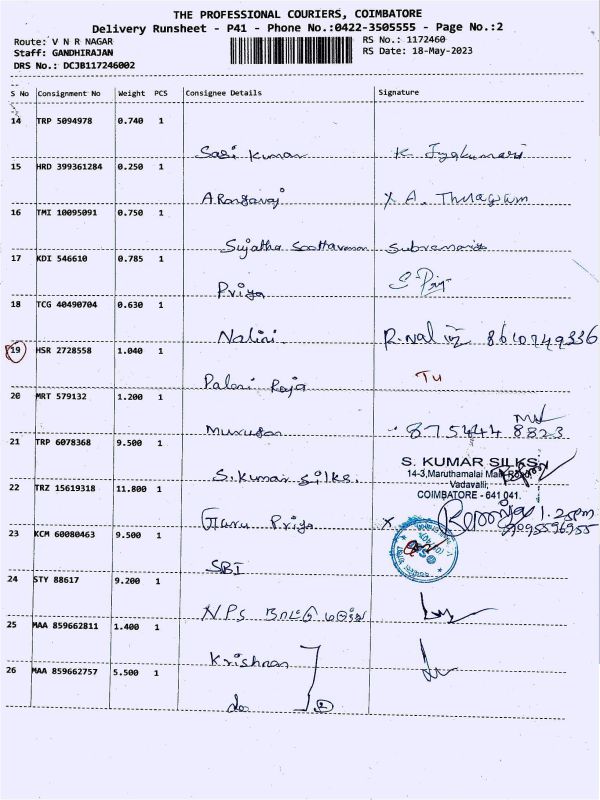 THE PROFESSIONAL COURIERS, COIMBATORE
Delivery Runsheet - P41 - Phone No.:0422-3505555 - Page No.:2
Route: V N R NAGAR RS No.: 1172460
Staff: GANDHIRAJAN RS Date: 18-May-2023
DRS No.: DCJB117246002
S No Consignment No Weight PCS Consignee Details Signature
14 TRP 5094978 0.740 1
Sasi Kumar K Jyakumari
15 HRD 399361284 0.250 1
A Rangaraj X A.
16 TMI 10095091 0.750 1
Sujatha
17 KDI 546610 0.785 1
Priya
18 TCG 40490704 0.630 1
Nalini
19 HSR 2728558 1.040 1
Palani Raja Tu
20 MRT 579132 1.200 1
Murugan 875444 8823
21 TRP 6078368 9.500 1
S. Kumar Silks. S. KUMAR SILKS
14-3, Maruthamalai Main Road,
Vadavalli,
COIMBATORE - 641 041.
22 TRZ 15619318 11.800 1
Guru Priya X 1.25pm
23 KCM 60080463 9.500 1
SBI
24 STY 88617 9.200 1
NPS நாட்டு
25 MAA 859662811 1.400 1
Krishnan
26 MAA 859662757 5.500 1
do 2